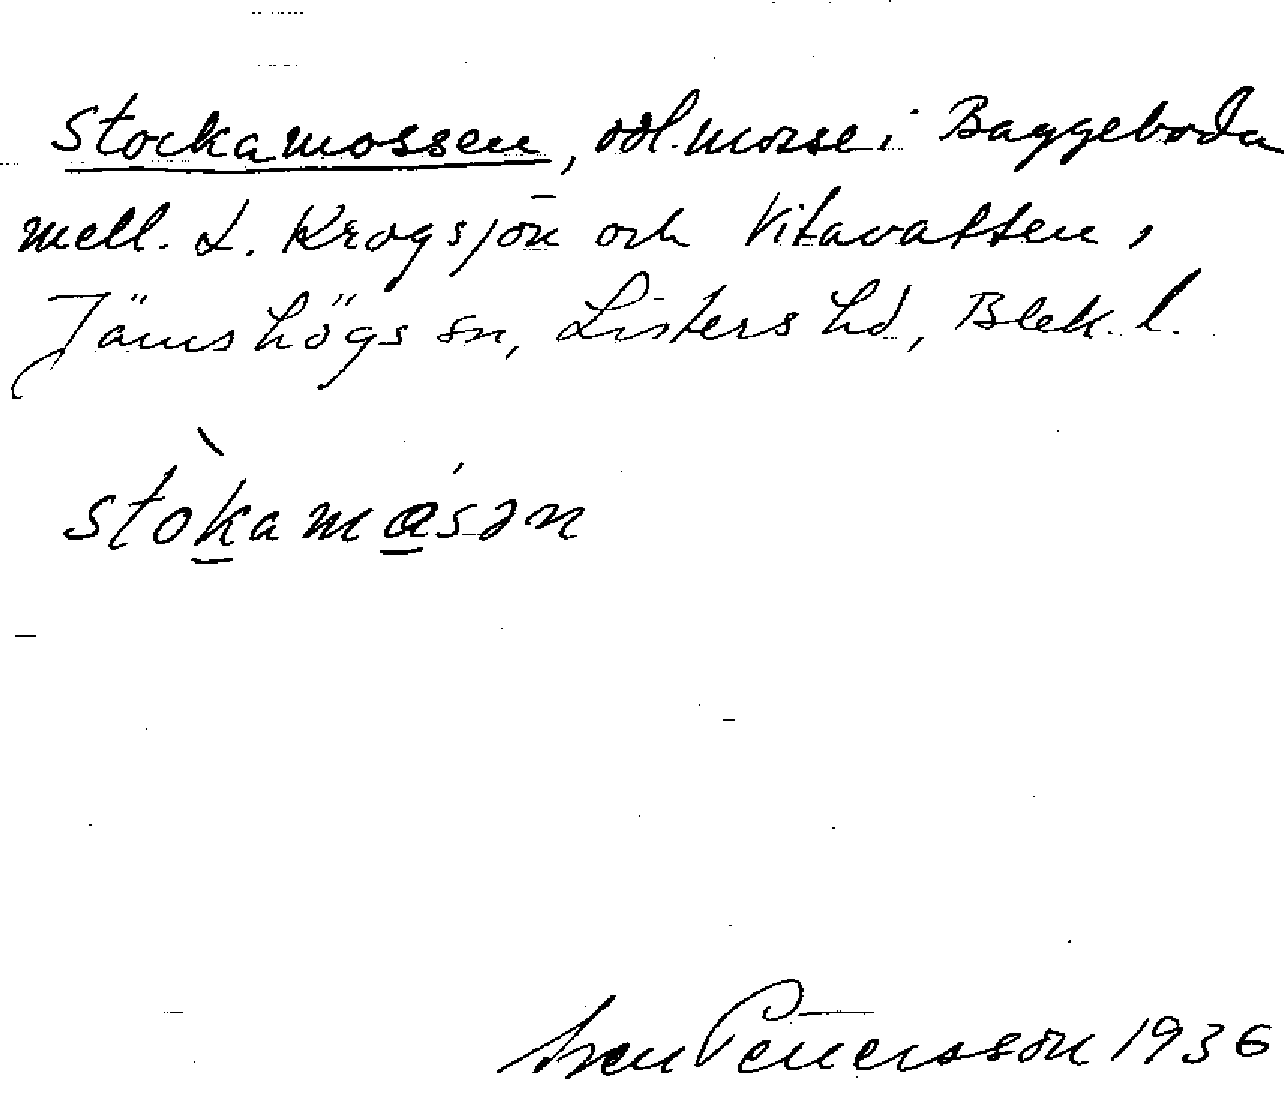 Stockamossen, odl. mosse i Baggeboda
mell. L. Krogsjön och Vitavatten,
Jämshögs sn, Listers hd, Blek. l.
stòkamåsən
Sven Pettersson 1936